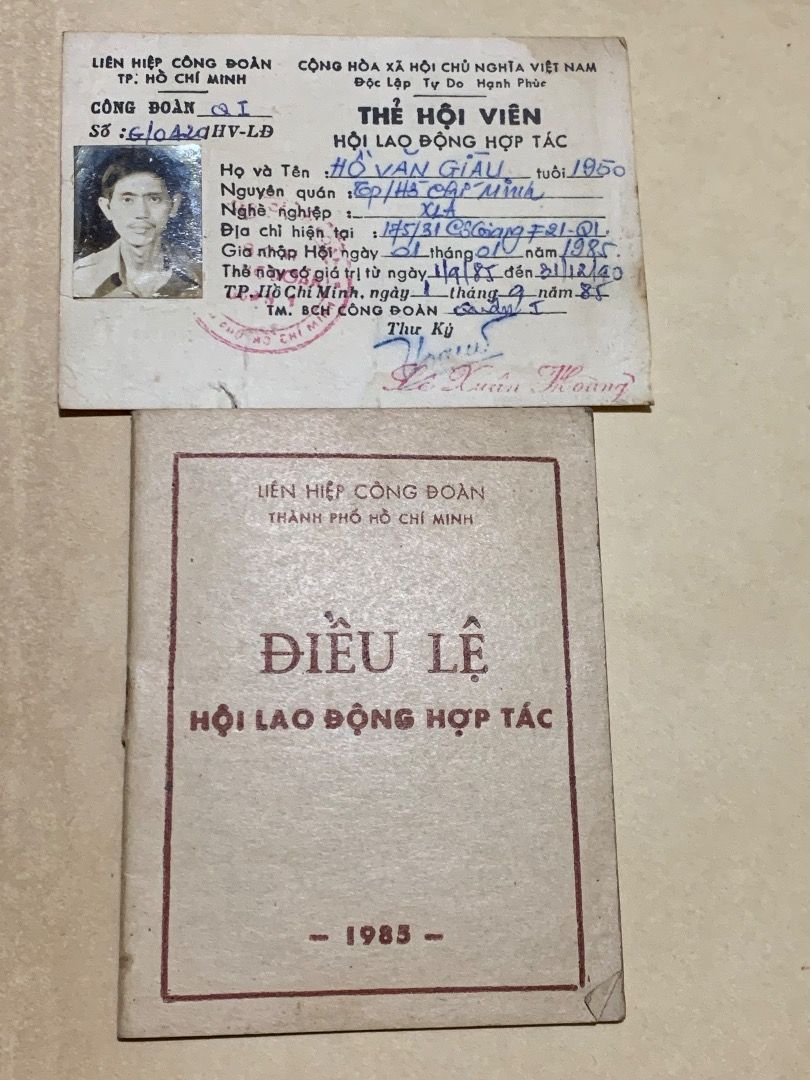 LIÊN HIỆP CÔNG ĐOÀN
TP. HỒ CHÍ MINH
CÔNG ĐOÀN Q I
Số : HV-LĐ
CỘNG HÒA XÃ HỘI CHỦ NGHĨA VIỆT NAM
Độc Lập Tự Do Hạnh Phúc
THẺ HỘI VIÊN
HỘI LAO ĐỘNG HỢP TÁC
Họ và Tên : HỒ VĂN GIÀU tuổi 1950
Nguyên quán : Tp/Hồ Chí Minh
Nghề nghiệp : XLA
Địa chỉ hiện tại : 175/31 Cô Giang F21-Q1.
Gia nhập Hội ngày 01 tháng 01 năm 1985.
Thẻ này có giá trị từ ngày 1/9/85 đến 31/12/90
TP. Hồ Chí Minh, ngày 1 tháng 9 năm 85
TM. BCH CÔNG ĐOÀN Quận I
Thư Ký
Lê Xuân Hoàng
LIÊN HIỆP CÔNG ĐOÀN
THÀNH PHỐ HỒ CHÍ MINH
ĐIỀU LỆ
HỘI LAO ĐỘNG HỢP TÁC
- 1985 -